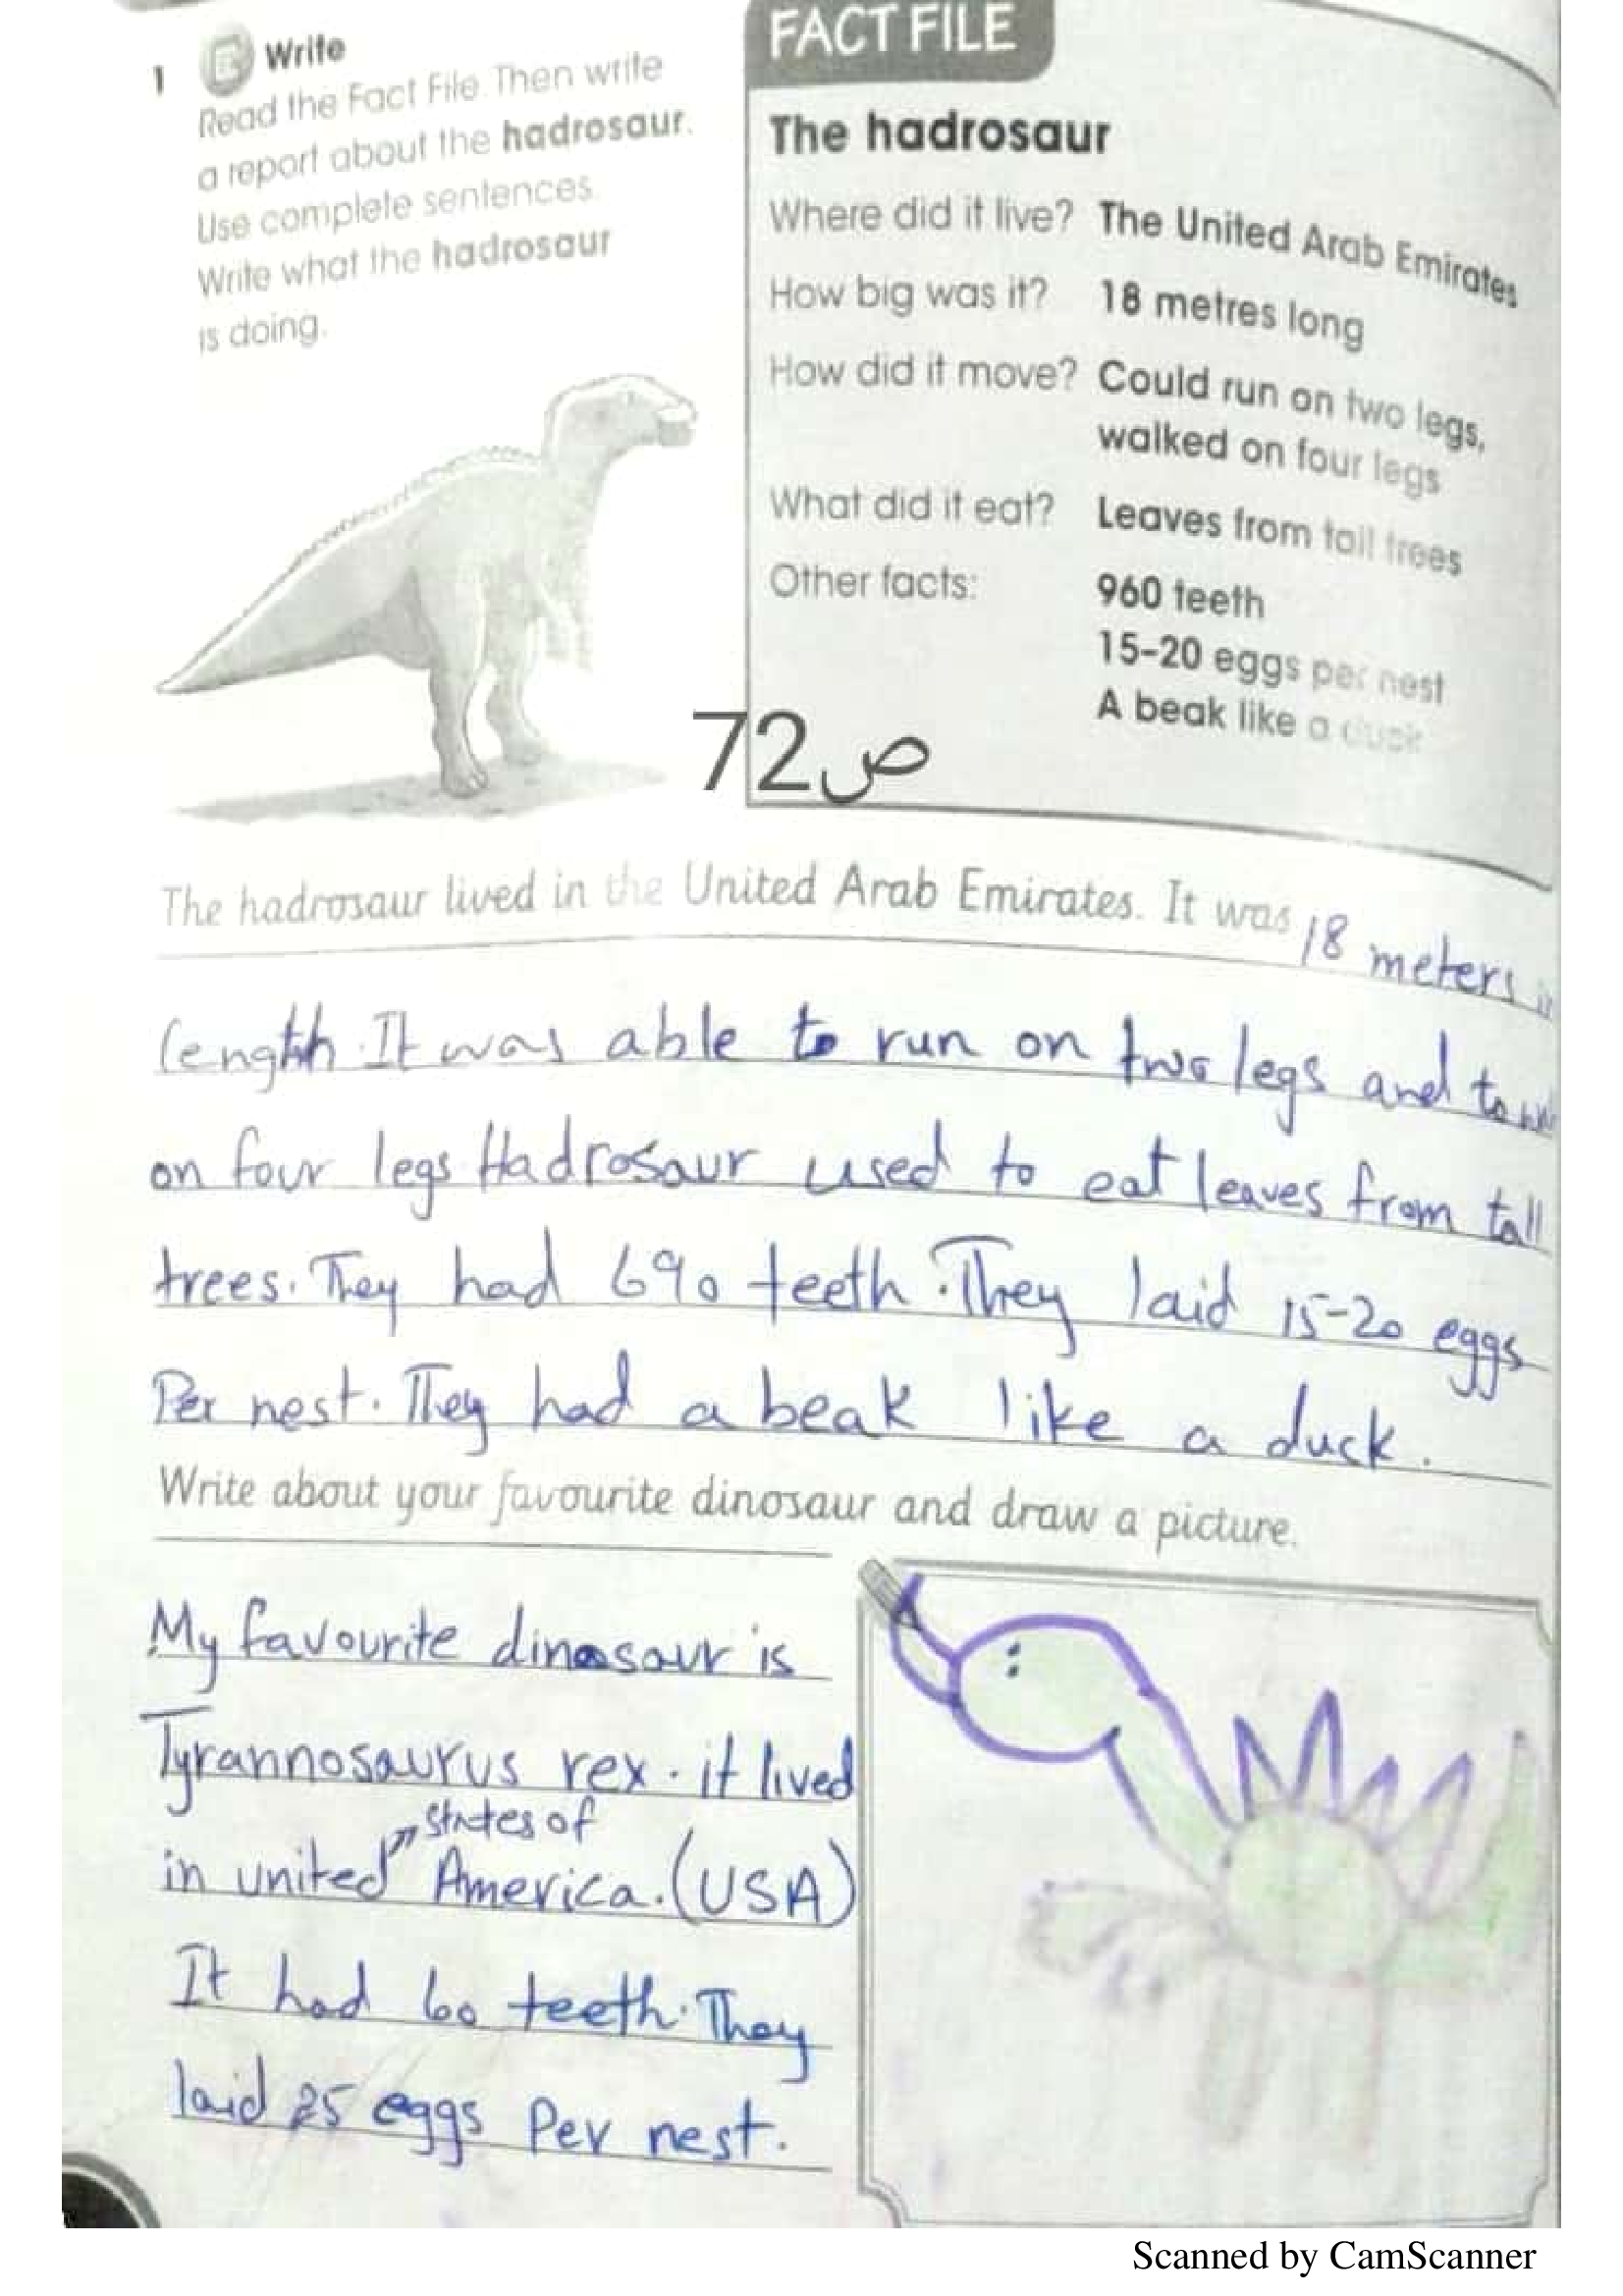 1 Write
Read the Fact File. Then write
a report about the hadrosaur.
Use complete sentences.
Write what the hadrosaur
is doing.
FACT FILE
The hadrosaur
Where did it live? The United Arab Emirates
How big was it? 18 metres long
How did it move? Could run on two legs,
walked on four legs
What did it eat? Leaves from tall trees
Other facts: 960 teeth
15-20 eggs per nest
A beak like a duck
72ص
The hadrosaur lived in the United Arab Emirates. It was 18 meters
length. It was able to run on two legs and to
on four legs Hadrosaur used to eat leaves from tall
trees. They had 690 teeth. They laid 15-20 eggs
Per nest. They had a beak like a duck.
Write about your favourite dinosaur and draw a picture.
My favourite dinosaur is
Tyrannosaurus rex. it lived
states of
in united America. (USA)
It had 60 teeth. They
laid 25 eggs Per nest.
Scanned by CamScanner